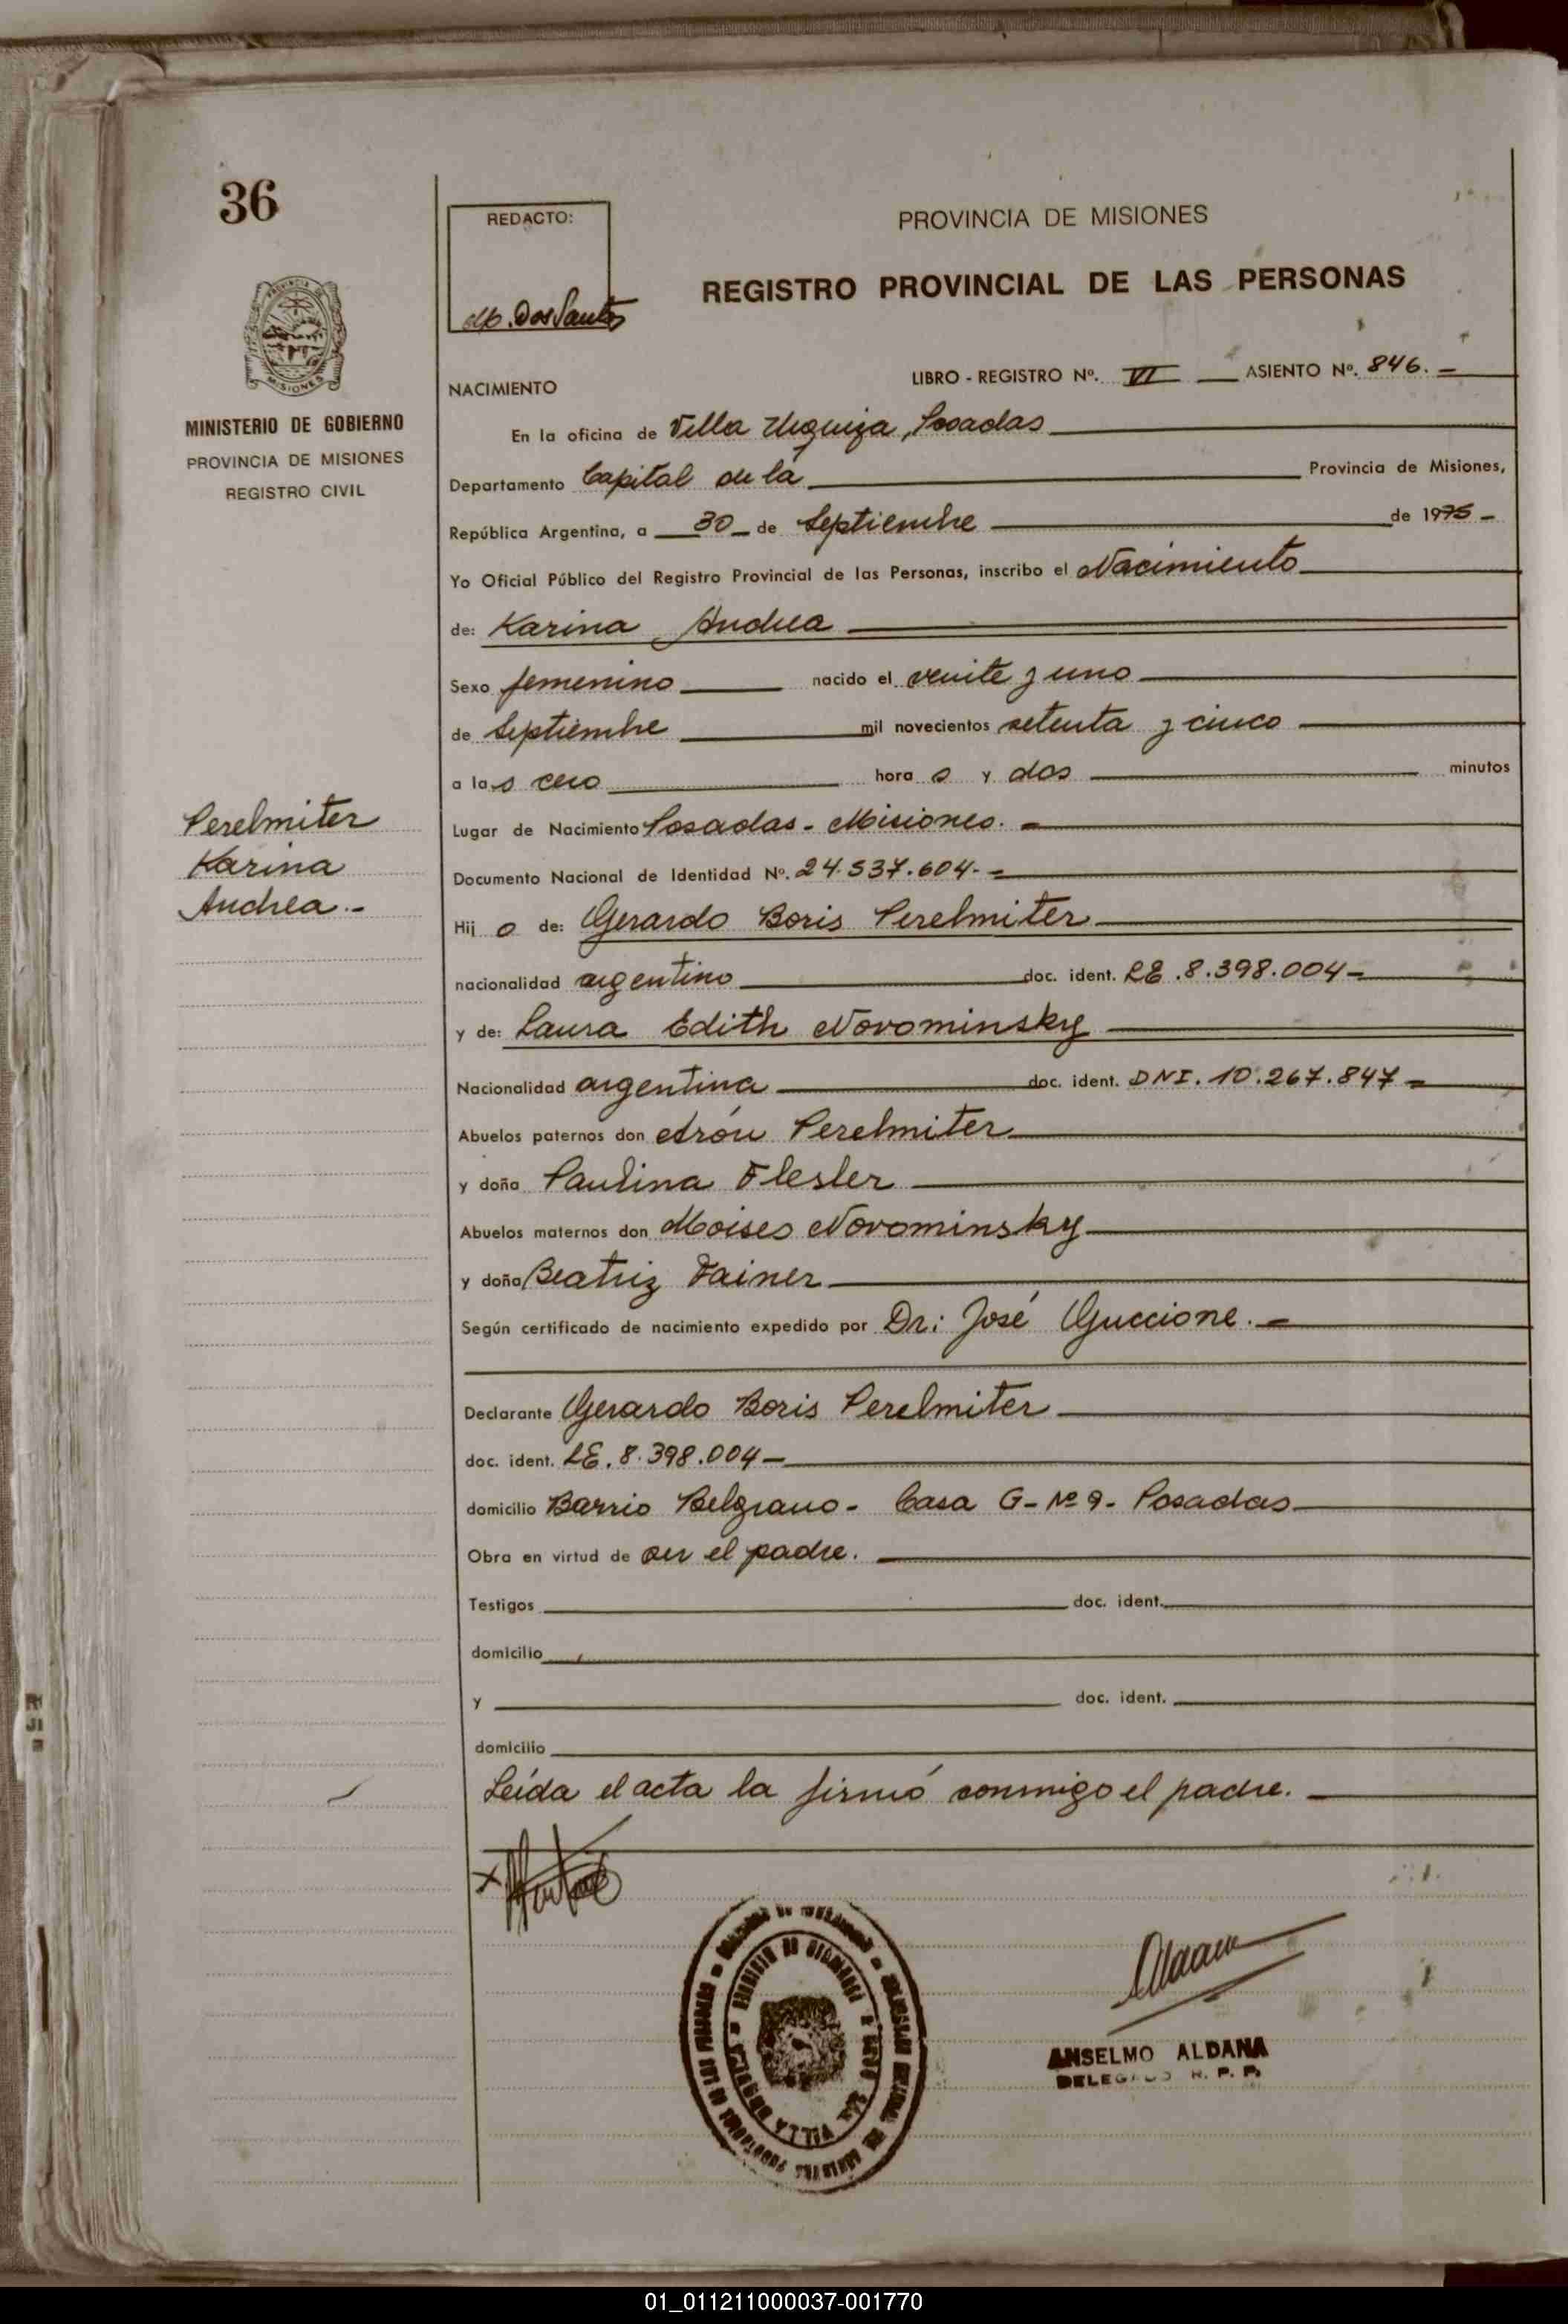 36
REDACTO:
Dos Santos
PROVINCIA DE MISIONES
REGISTRO PROVINCIAL DE LAS PERSONAS
MISIONES
MINISTERIO DE GOBIERNO
PROVINCIA DE MISIONES
REGISTRO CIVIL
NACIMIENTO
LIBRO - REGISTRO Nº. VI ASIENTO Nº. 846. -
En la oficina de Villa Urquiza, Posadas
Departamento Capital de la Provincia de Misiones,
República Argentina, a 30 de Septiembre de 1975 -
Yo Oficial Público del Registro Provincial de las Personas, inscribo el Nacimiento
de: Karina Andrea
Sexo femenino nacido el veinte y uno
de Septiembre mil novecientos setenta y cinco
a las cero horas y dos minutos
Perelmiter
Karina
Andrea.-
Lugar de Nacimiento Posadas - Misiones. -
Documento Nacional de Identidad Nº. 24.537.604.-
Hijo de: Gerardo Boris Perelmiter
nacionalidad argentino doc. ident. LE.8.398.004-
y de: Laura Edith Novominsky
Nacionalidad argentina doc. ident. DNI. 10.267.847-
Abuelos paternos don Arón Perelmiter
y doña Paulina Flesler
Abuelos maternos don Moises Novominsky
y doña Beatriz Fainer
Según certificado de nacimiento expedido por Dr: José Guccione. -
Declarante Gerardo Boris Perelmiter
doc. ident. LE. 8.398.004-
domicilio Barrio Belgrano - Casa G - Nº 9 - Posadas
Obra en virtud de ser el padre.
Testigos doc. ident.
domicilio
y doc. ident.
domicilio
Leída el acta la firmó conmigo el padre.
VILLA URQUIZA
ANSELMO ALDANA
DELEGADO R. P. P.
01_011211000037-001770